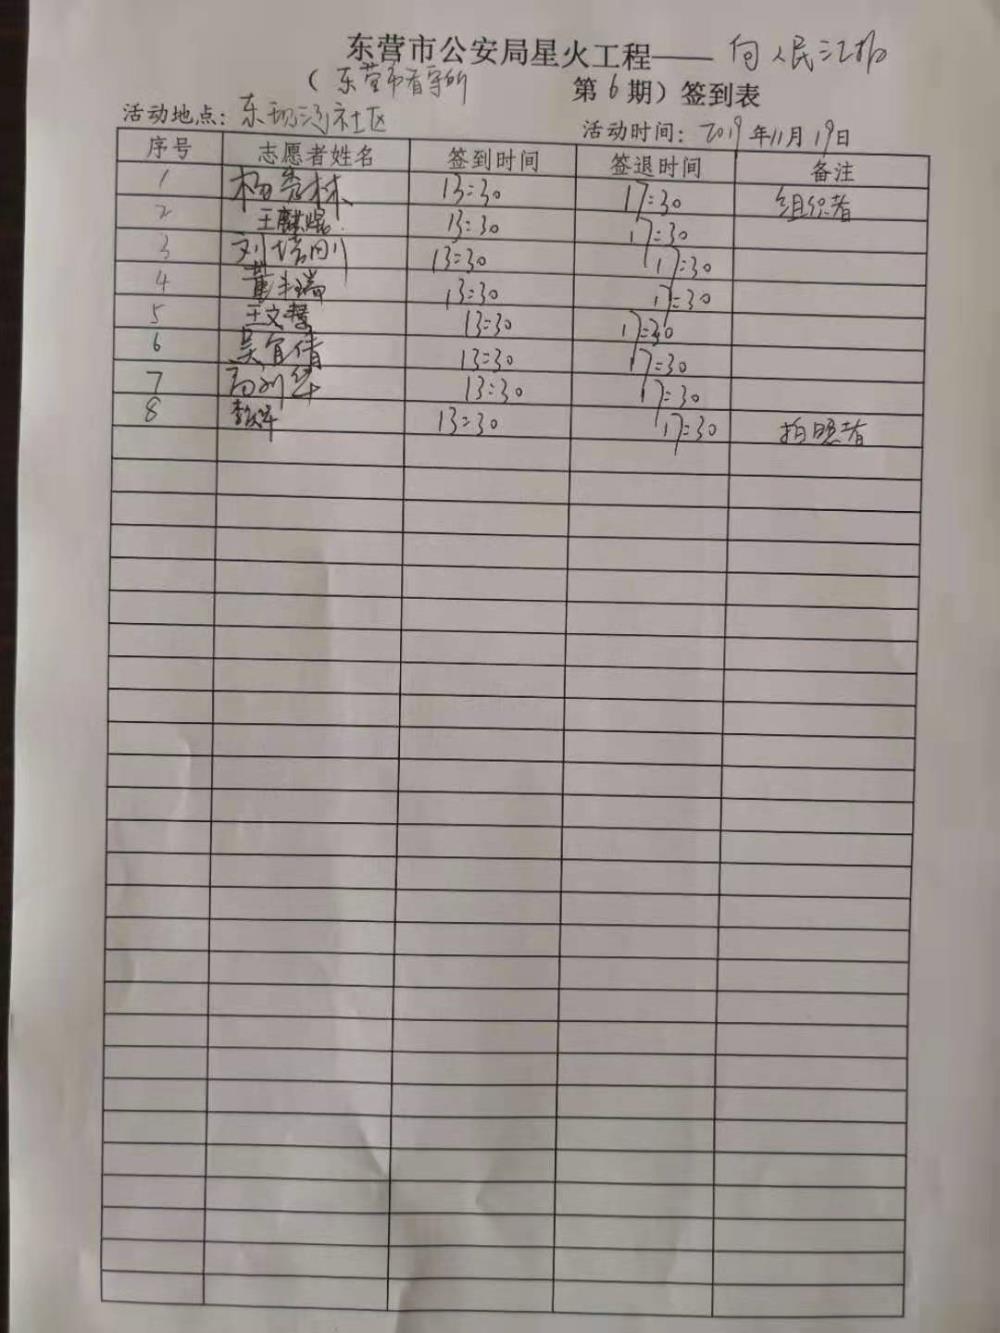 东营市公安局星火工程——向人民汇报
（东营市看守所 第6期）签到表
活动地点：东 社区 活动时间：2019年11月19日
序号 志愿者姓名 签到时间 签退时间 备注
1 杨 林 13:30 17:30 组织者
2 王麒 13:30 17:30
3 刘培刚 13:30 17:30
4 董 瑞 13:30 17:30
5 王文 13:30 17:30
6 吴宜倩 13:30 17:30
7 13:30 17:30
8 李 13:30 17:30 拍照者